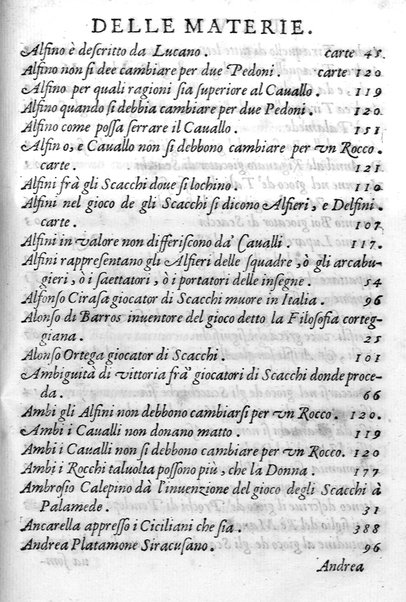 DELLE MATERIE.
Alfino è descritto da Lucano. carte 45
Alfino non si dee cambiare per due Pedoni. carte 120
Alfino per quali ragioni sia superiore al Cauallo. 119
Alfino quando si debbia cambiare per due Pedoni. 120
Alfino come possa serrare il Cauallo. 151
Alfino, e Cauallo non si debbono cambiare per vn Rocco.
carte. 121
Alfini frà gli Scacchi doue si lochino. 110
Alfini nel gioco de gli Scacchi si dicono Alfieri, e Delfini.
carte. 107
Alfini in valore non differiscono da' Caualli. 117.
Alfini rappresentano gli Alfieri delle squadre, ò gli arcabu-
gieri, ò i saettatori, ò i portatori delle insegne. 54
Alfonso Cirasa giocator di Scacchi muore in Italia. 96
Alonso di Barros inuentore del gioco detto la Filosofia corteg-
giana. 25
Alonso Ortega giocator di Scacchi. 101
Ambiguità di vittoria frà giocatori di Scacchi donde proce-
da. 66
Ambi gli Alfini non debbono cambiarsi per vn Rocco. 120.
Ambi i Caualli non donano matto. 119
Ambi i Caualli non si debbono cambiare per vn Rocco. 120
Ambi i Rocchi taluolta possono più, che la Donna. 177
Ambrosio Calepino dà l'inuenzione del gioco degli Scacchi à
Palamede. 31
Ancarella appresso i Ciciliani che sia. 388
Andrea Platamone Siracusano. 96
Andrea